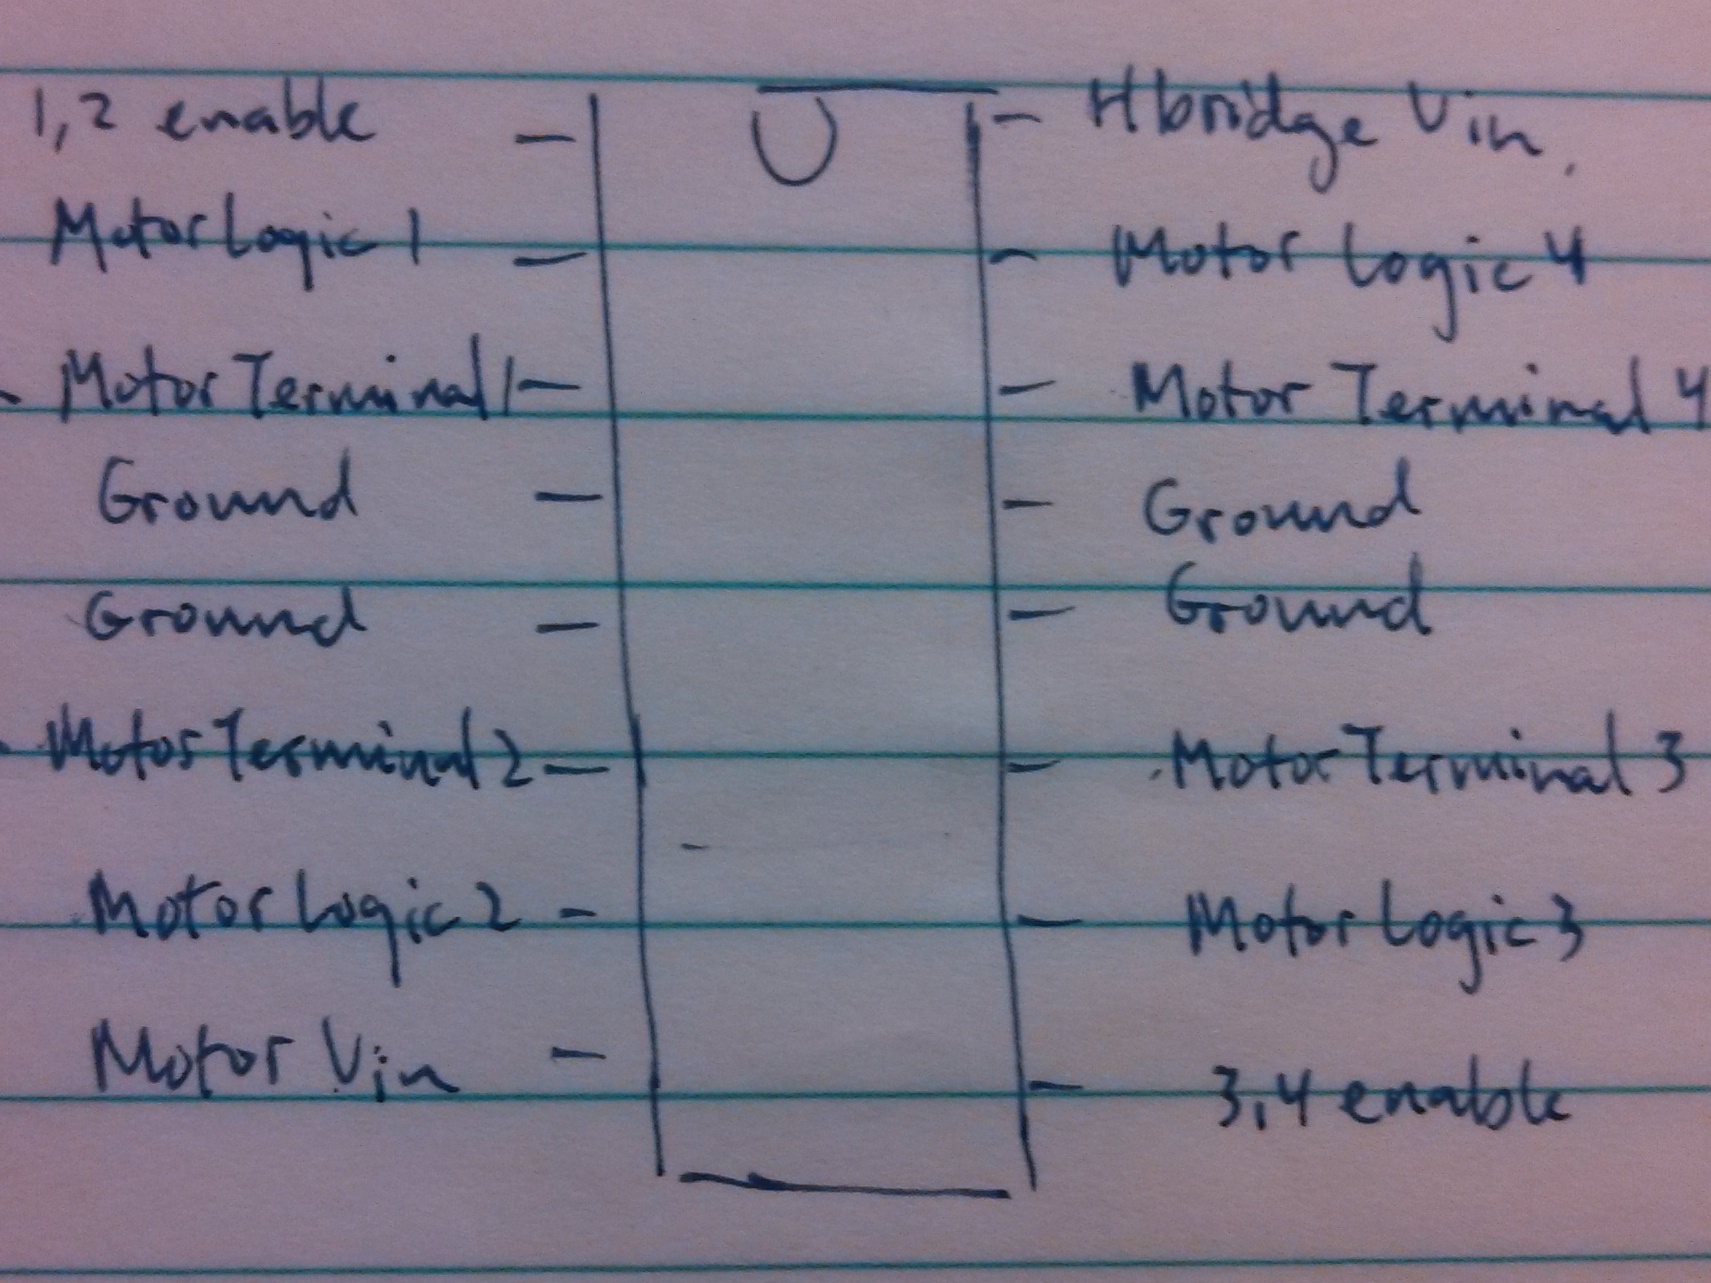 1,2 enable
Motor Logic 1
Motor Terminal 1
Ground
Ground
Motor Terminal 2
Motor Logic 2
Motor Vin
Hbridge Vin.
Motor Logic 4
Motor Terminal 4
Ground
Ground
Motor Terminal 3
Motor Logic 3
3,4 enable